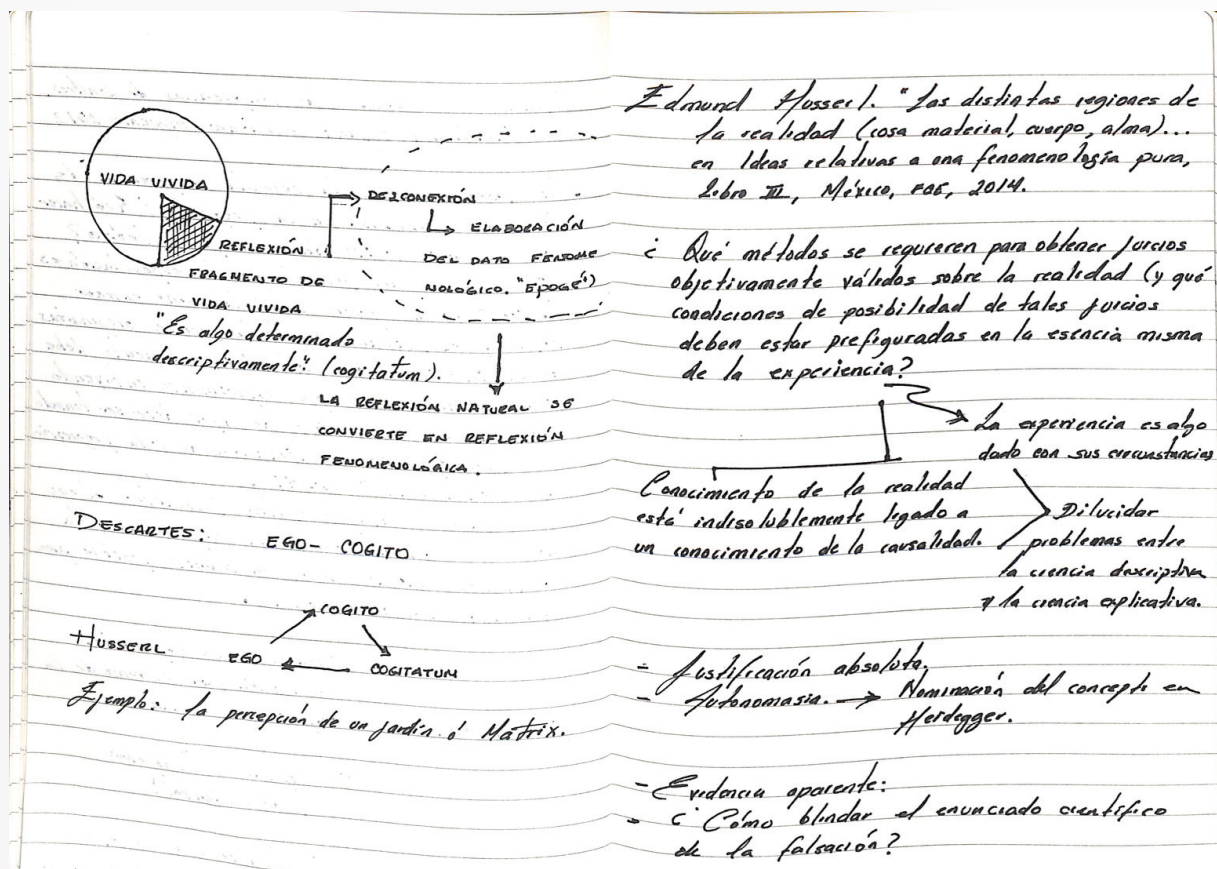 VIDA VIVIDA
REFLEXIÓN
FRAGMENTO DE
VIDA VIVIDA
"Es algo determinado
descriptivamente". (cogitatum).
DESCONEXIÓN
ELABORACIÓN
DEL DATO FENOME
NOLÓGICO. "EPOGÉ")
LA REFLEXIÓN NATURAL SE
CONVIERTE EN REFLEXIÓN
FENOMENOLÓGICA.
DESCARTES: EGO - COGITO
COGITO
HUSSERL EGO COGITATUM
Ejemplo: la percepción de un jardín ó Mátrix.
Edmund Husserl. "Las distintas regiones de
la realidad (cosa material, cuerpo, alma)...
en Ideas relativas a una fenomenología pura,
Libro III, México, FCE, 2014.
¿Qué métodos se requieren para obtener juicios
objetivamente válidos sobre la realidad (y qué
condiciones de posibilidad de tales juicios
deben estar prefiguradas en la esencia misma
de la experiencia?
La experiencia es algo
dado con sus circunstancias
Conocimiento de la realidad
está indisolublemente legado a
un conocimiento de la causalidad.
Dilucidar
problemas entre
la ciencia descriptiva
y la ciencia explicativa.
- Justificación absoluta.
- Autonomasia. → Nominación del concepto en
Heidegger.
- Evidencia aparente:
- ¿Cómo blindar el enunciado científico
de la falsación?